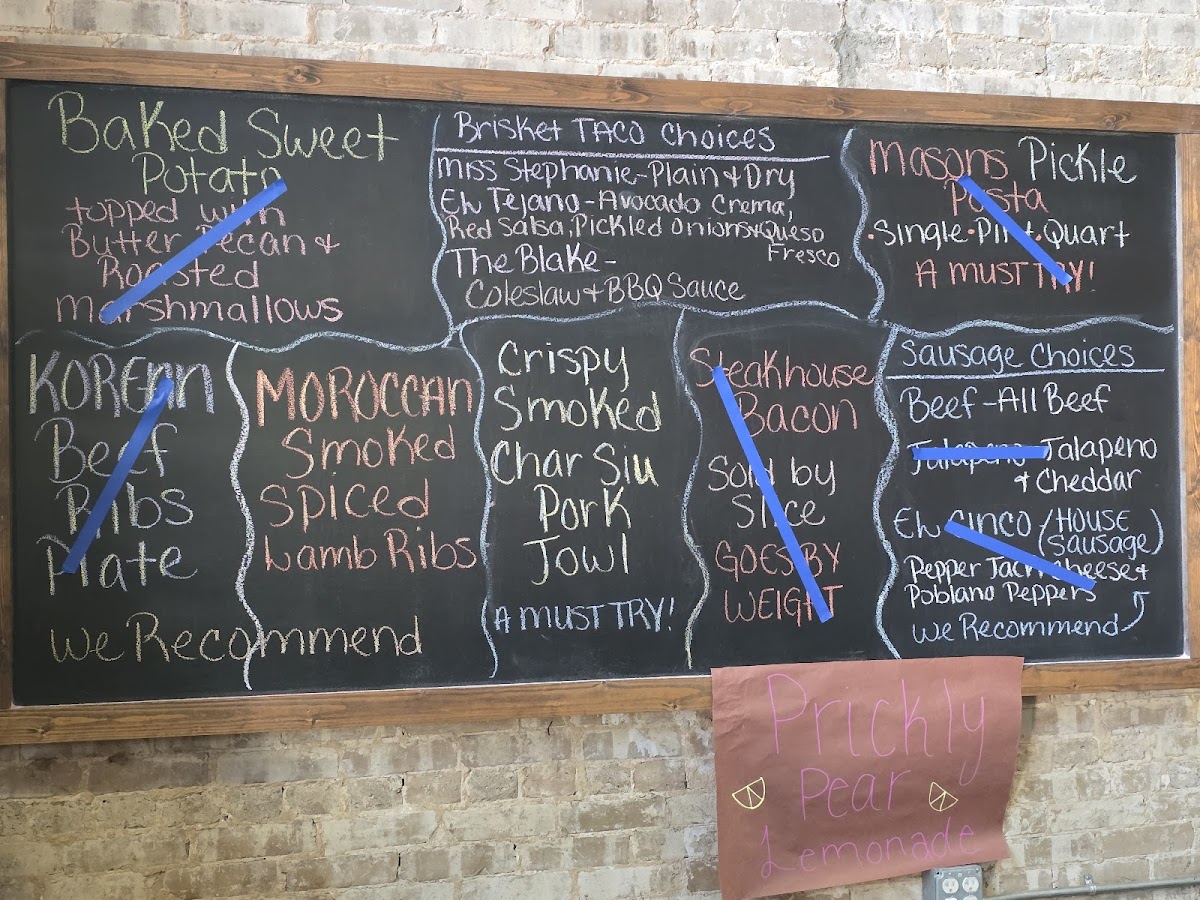 Baked Sweet
Potato
topped with
Butter Pecan &
Roasted
Marshmallows
Brisket TACO Choices
Miss Stephanie-Plain & Dry
EL Tejano-Avocado Crema,
Red Salsa, Pickled Onions & Queso
Fresco
The Blake-
Coleslaw & BBQ Sauce
Masons Pickle
Pasta
•Single•Pint•Quart
A MUST TRY!
KOREAN
Beef
Ribs
Plate
MOROCCAN
Smoked
Spiced
Lamb Ribs
We Recommend
Crispy
Smoked
Char Siu
Pork
Jowl
A MUST TRY!
Steakhouse
Bacon
Sold by
Slice
GOES BY
WEIGHT
Sausage Choices
Beef-All Beef
Jalapeno Jalapeno
& Cheddar
EL CINCO (HOUSE
Sausage)
Pepper Jack Cheese &
Poblano Peppers
We Recommend
Prickly
Pear
Lemonade